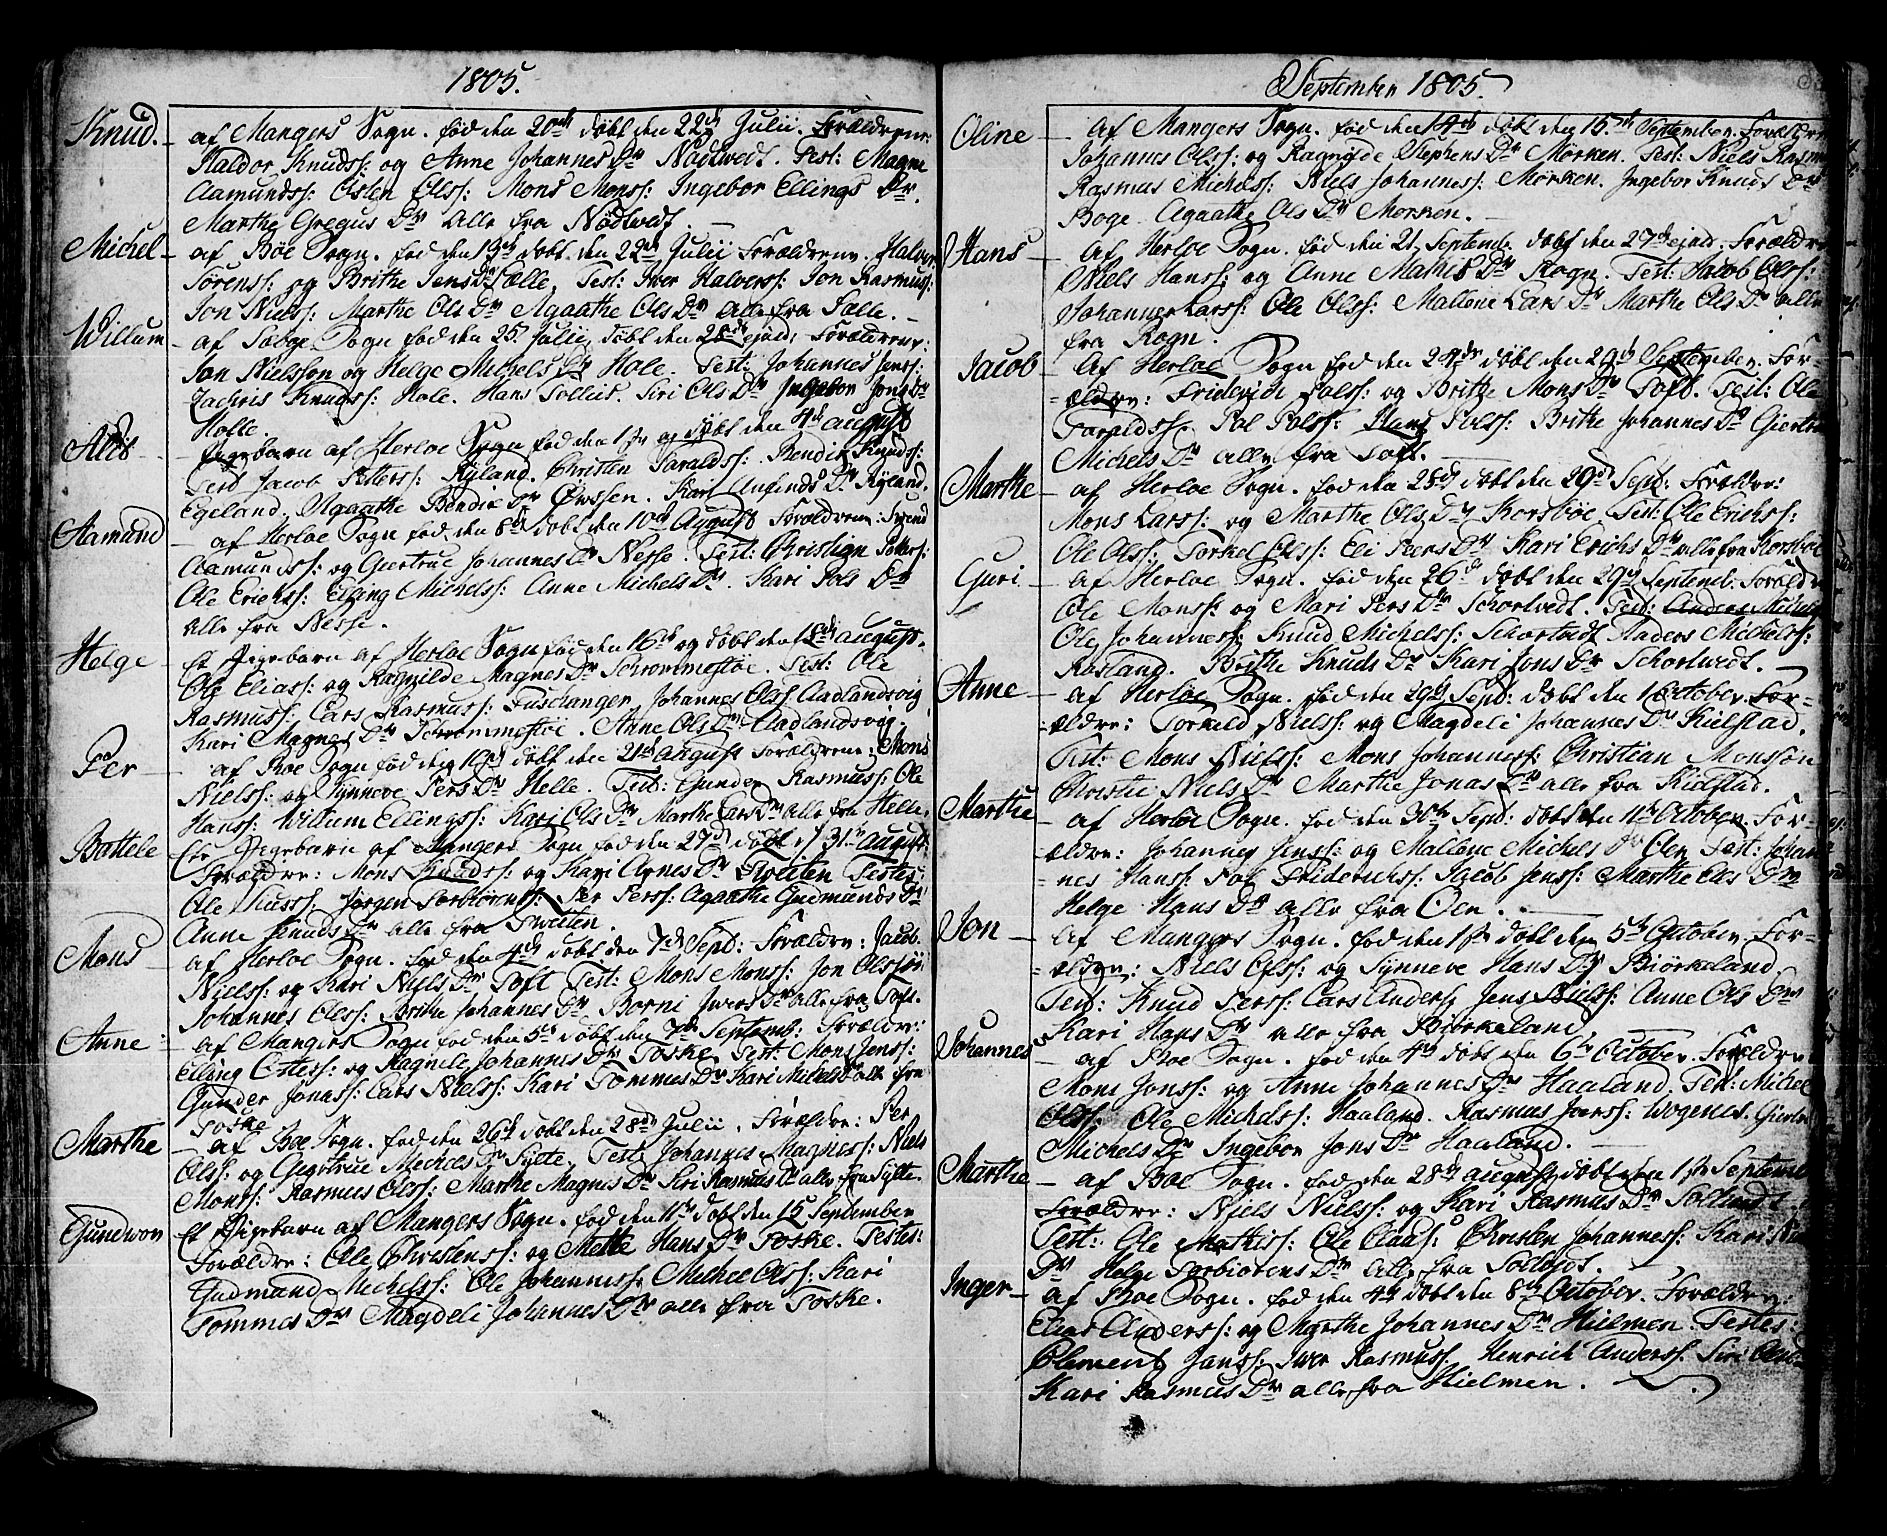 1805.
Knud. - af Mangers Sogn. fød den 20de døbt den 22de Julii. Forældrene:
Haldor Knuds: og Anne Johannes Dr Nødtwedt. Test: Magne
Aamundss: Osten Olss: Mons Monss: Ingebor Ellings Dr.
Marthe Gregus Dr alle fra Nødtvedt. -
Michel - af Bøe Sogn. fød den 13de døbt den 22de Julii Forældrene. Halver
Sørens: og Brithe Jens Dr Sælle, Test: Iver Halverss: Jon Rasmuss:
Jon Nielss: Marthe Ols Dr Agaathe Ols Dr alle fra Sælle. -
Willum - af Sogn fød den 25 Julii, døbt den 28de ejusd: Forældrene:
Jon Nielsson og Helge Michels Dr Hole. Test: Johannes Jenss:
Zachris Knudss: Hole. Hans Siri Ols Dr Ingebor Jons Dr
Holle.
Aleis - Pigebarn af Herløe Sogn fød den 1ste og døbt den 4de august
Test Jacob Petterss: Ryland. Christen Haraldss: Bendix Knudss:
Egeland. Agaathe Bendix Dr Øwssen. Kari Anfinds Dr Ryland.
Aamund - af Herløe Sogn fød den 8de døbt den 10de August Forældrene: Svend
Aamundss: og Giertrue Johannes Dr Nesse. Test: Christian Petterss:
Ole Erichss: Elling Michelss: Anne Michels Dr. Kari Pols Dr
alle fra Nesse.
Helge - Et Pigebarn af Herløe Sogn fød den 16de og døbt den 18de august.
Ole Eliass: og Ragnilde Magnes Dr Schrommestøe. Test: Ole
Rasmuss: Lars Rasmuss: Fuschanger, Johannes Olss Aadlandsvig
Kari Magnes Dr Schrommestøe. Anne Ols Dr Aadlandsvig.
Per - af Bøe Sogn fød den 19de døbt den 21de August Forældrene: Mons
Nielss: og Synneve Pers Dr Helle. Test: Gunder Rasmuss: Ole
Hanss: Willum Ellingss: Kari Ols Dr Marthe Lars Dr alle fra Helle.
Battele Et Pigebarn af Mangers Sogn fød den 27de døbt d 31te August
Forældre: Mons Knudss: og Kari Arnes Dr Tweiten Testes:
Ole Jørgen Torbiornss: Per Perss: Agaathe Gudmunds Dr
Anne Knuds Dr alle fra Tweiten.
Mons - af Herløe Sogn. fød den 4de døbt den 7de Sept: Forældre: Jacob
Nielss: og Kari Niels Dr Toft Test: Mons Monss: Jon Olss
Johannes Olss: Brithe Johannes Dr Borni Iwers Dr alle fra Toft.
Anne - af Mangers Sogn fød den 5de døbt den 7de Septemb: Forældre:
Elling Ottess: og Ragnele Johannes Dr Toske, Test: Mons Jenss:
Gunder Jonass: Lars Nielss: Kari Tommes Dr Kari Michels Dr alle fra
Toske
Marthe - af Boe Sogn. fød den 26de døbt den 28de Julii. Forældre: Per
Olss: og Giertrue Mechels Dr Sylte, Test: Johannes Magness: Niels
Monss: Rasmus Olss: Marthe Magnis Dr Siri Rasmus Dr alle fra Sylte.
Gundwor Et Pigebarn af Mangers Sogn. fød den 11te døbt den 15 September
Forældre: Ole Christenss: og Mette Hans Dr Toske. Testes:
Gudmand Michelss: Ole Johanness: Michel Olss: Kari
Tommes Dr Magdeli Johannes Dr alle fra Toske.
September 1805.
Oline - Af Mangers Sogn. fød den 14de døbt den 15de September. Forældre
Johannes Olss: og Ragnilde Stephens Dr Mørken. Test: Niels Rasm
Rasmus Michelss: Niels Johanness: Mørken. Ingebor Knuds Dr
Boge. Agaathe Ols Dr Mørken. -
Hans - af Herløe Sogn. fød den 21 Septemb. døbt den 27de ejusd: Forældre
Niels Hanss: og Anne Mathis Dr Rogn. Test: Jacob Olss:
Johannes Larss: Ole Olss: Mallene Lars Dr Marthe Ols Dr alle
fra Rogn.
Jacob - Af Herløe Sogn fød den 24de døbt den 29de September. For-
-ældre: Friderich Polss: og Brithe Mons Dr Toft. Test: Ole
Haraldss. Pol Polss: Hans Polss: Brithe Johannes Dr Giertru
Michels Dr alle fra Toft.
Marthe - af Herløe Sogn. fød den 28de døbt den 29de Sept: Forældre:
Mons Larss: og Marthe Ols Dr Korsbøe Test: Ole Erichss:
Ole Olss: Torkel Olss: Eli Pers Dr Kari Erichs Dr alle fra Korsbøe
Guri - af Herløe Sogn. fød den 26de døbt den 29de Septemb: Forældre
Ole Monss: og Mari Pers Dr Schortvedt. Test: Anders Michels
Ole Johanness: Knud Michelss: Schortvedt Anders Michelss:
Rosland. Brithe Knuds Dr Kari Jons Dr Schortwedt. -
Anne - af Herløe Sogn. fød den 29de Sept: døbt den 1 October. For-
-ældre: Torkild Nielss: og Magdeli Johannes Dr Kielstad.
Test: Mons Nielss: Mons Johanness: Christian Monsson
Christie Niels Dr Marthe Jonas Dr alle fra Kielstad.
Marthe - af Herløe Sogn. fød den 30te Sept: døbt den 11te October. For-
ældre: Johannes Jenss: og Mallene Michels Dr Oen Test: Johan
nes Hanss: Pol Friderichss: Jacob Jenss: Marthe Ols Dr
Helge Hans Dr alle fra Oen. -
Jon - Af Mangers Sogn. fød den 1ste døbt den 5te October. For-
-ældre: Niels Olss: og Synneve Hans Dr Biørkeland
Test: Knud Perss: Lars Anderss, Jens Nielss: Anne Ols Dr
Kari Hans Dr alle fra Biørkeland.
Johannes - af Boe Sogn. fød den 4de døbt den 6te October. Forældre
Mons Jonss: og Anne Johannes Dr Haaland. Test: Michel
Olss: Ole Michelss: Haaland. Rasmus Joerss: Wogenes. Giertr
Michels Dr Ingebor Jons Dr Haaland. -
Marthe - af Boe Sogn. fød den 28de august døbt den 1ste Septemb
Forældre: Niels Nielss: og Kari Rasmus Dr
Test: Ole Mathiss: Ole Olaas: Christen Johanness: Kari
Dr Helge Torbiorens Dr alle fra
Inger - af Boe Sogn. fød den 4de døbt den 8de October. Forældre:
Elias Anderss: og Marthe Johannes Dr Hielmen Testes:
Clement Janss: Iwer Rasmuss. Henrich Anderss: Siri
Kari Rasmus Dr alle fra Hielmen.